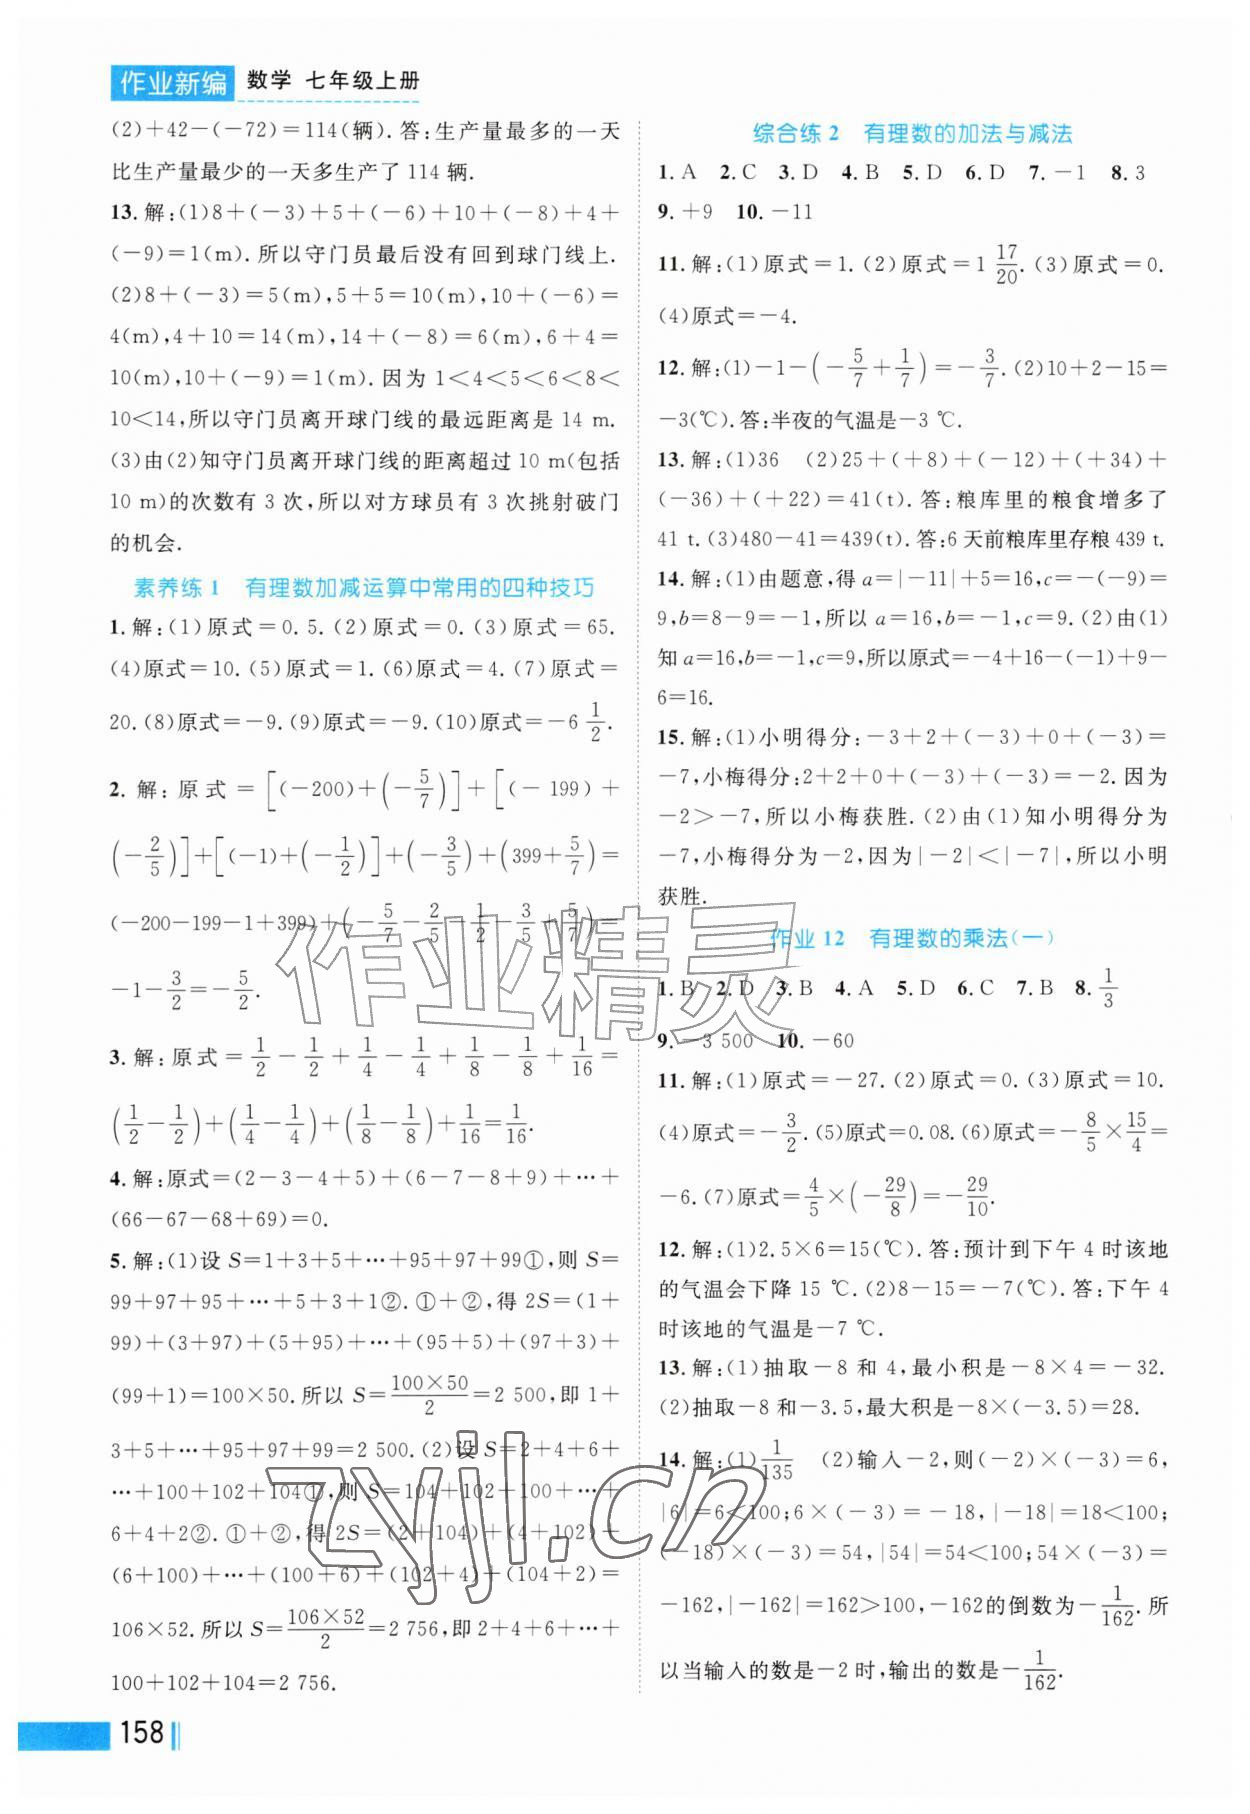 作业新编 数学 七年级上册
(2)+42-(-72)=114(辆).答:生产量最多的一天
比生产量最少的一天多生产了 114 辆.
13.解:(1)8+(-3)+5+(-6)+10+(-8)+4+
(-9)=1(m).所以守门员最后没有回到球门线上.
(2)8+(-3)=5(m),5+5=10(m),10+(-6)=
4(m),4+10=14(m),14+(-8)=6(m),6+4=
10(m),10+(-9)=1(m).因为 1<4<5<6<8<
10<14,所以守门员离开球门线的最远距离是 14 m.
(3)由(2)知守门员离开球门线的距离超过 10 m(包括
10 m)的次数有 3 次,所以对方球员有 3 次挑射破门
的机会.
素养练 1 有理数加减运算中常用的四种技巧
1.解:(1)原式=0.5.(2)原式=0.(3)原式=65.
(4)原式=10.(5)原式=1.(6)原式=4.(7)原式=
20.(8)原式=-9.(9)原式=-9.(10)原式=-6 1/2.
2.解:原式=[(-200)+(-5/7)]+[(-199)+
(-2/5)]+[(-1)+(-1/2)]+(-3/5)+(399+5/7)=
(-200-199-1+399)+(-5/7-2/5-1/2-3/5+5/7)=
-1-3/2=-5/2.
3.解:原式=1/2-1/2+1/4-1/4+1/8-1/8+1/16=
(1/2-1/2)+(1/4-1/4)+(1/8-1/8)+1/16=1/16.
4.解:原式=(2-3-4+5)+(6-7-8+9)+…+
(66-67-68+69)=0.
5.解:(1)设 S=1+3+5+…+95+97+99①,则 S=
99+97+95+…+5+3+1②.①+②,得 2S=(1+
99)+(3+97)+(5+95)+…+(95+5)+(97+3)+
(99+1)=100×50.所以 S=100×50/2=2 500,即 1+
3+5+…+95+97+99=2 500.(2)设 S=2+4+6+
…+100+102+104①,则 S=104+102+100+…+
6+4+2②.①+②,得 2S=(2+104)+(4+102)+
(6+100)+…+(100+6)+(102+4)+(104+2)=
106×52.所以 S=106×52/2=2 756,即 2+4+6+…+
100+102+104=2 756.
158
综合练 2 有理数的加法与减法
1.A 2.C 3.D 4.B 5.D 6.D 7.-1 8.3
9.+9 10.-11
11.解:(1)原式=1.(2)原式=1 17/20.(3)原式=0.
(4)原式=-4.
12.解:(1)-1-(-5/7+1/7)=-3/7.(2)10+2-15=
-3(℃).答:半夜的气温是-3 ℃.
13.解:(1)36 (2)25+(+8)+(-12)+(+34)+
(-36)+(+22)=41(t).答:粮库里的粮食增多了
41 t.(3)480-41=439(t).答:6 天前粮库里存粮 439 t.
14.解:(1)由题意,得 a=|-11|+5=16,c=-(-9)=
9,b=8-9=-1,所以 a=16,b=-1,c=9.(2)由(1)
知 a=16,b=-1,c=9,所以原式=-4+16-(-1)+9-
6=16.
15.解:(1)小明得分:-3+2+(-3)+0+(-3)=
-7,小梅得分:2+2+0+(-3)+(-3)=-2.因为
-2>-7,所以小梅获胜.(2)由(1)知小明得分为
-7,小梅得分为-2,因为|-2|<|-7|,所以小明
获胜.
作业 12 有理数的乘法(一)
1.B 2.D 3.B 4.A 5.D 6.C 7.B 8.1/3
9.-3 500 10.-60
11.解:(1)原式=-27.(2)原式=0.(3)原式=10.
(4)原式=-3/2.(5)原式=0.08.(6)原式=-8/5×15/4=
-6.(7)原式=4/5×(-29/8)=-29/10.
12.解:(1)2.5×6=15(℃).答:预计到下午 4 时该地
的气温会下降 15 ℃.(2)8-15=-7(℃).答:下午 4
时该地的气温是-7 ℃.
13.解:(1)抽取-8 和 4,最小积是-8×4=-32.
(2)抽取-8和-3.5,最大积是-8×(-3.5)=28.
14.解:(1)1/135 (2)输入-2,则(-2)×(-3)=6,
|6|=6<100;6×(-3)=-18,|-18|=18<100;
(-18)×(-3)=54,|54|=54<100;54×(-3)=
-162,|-162|=162>100,-162的倒数为-1/162.所
以当输入的数是-2 时,输出的数是-1/162.
作业精灵
zyjl.cn